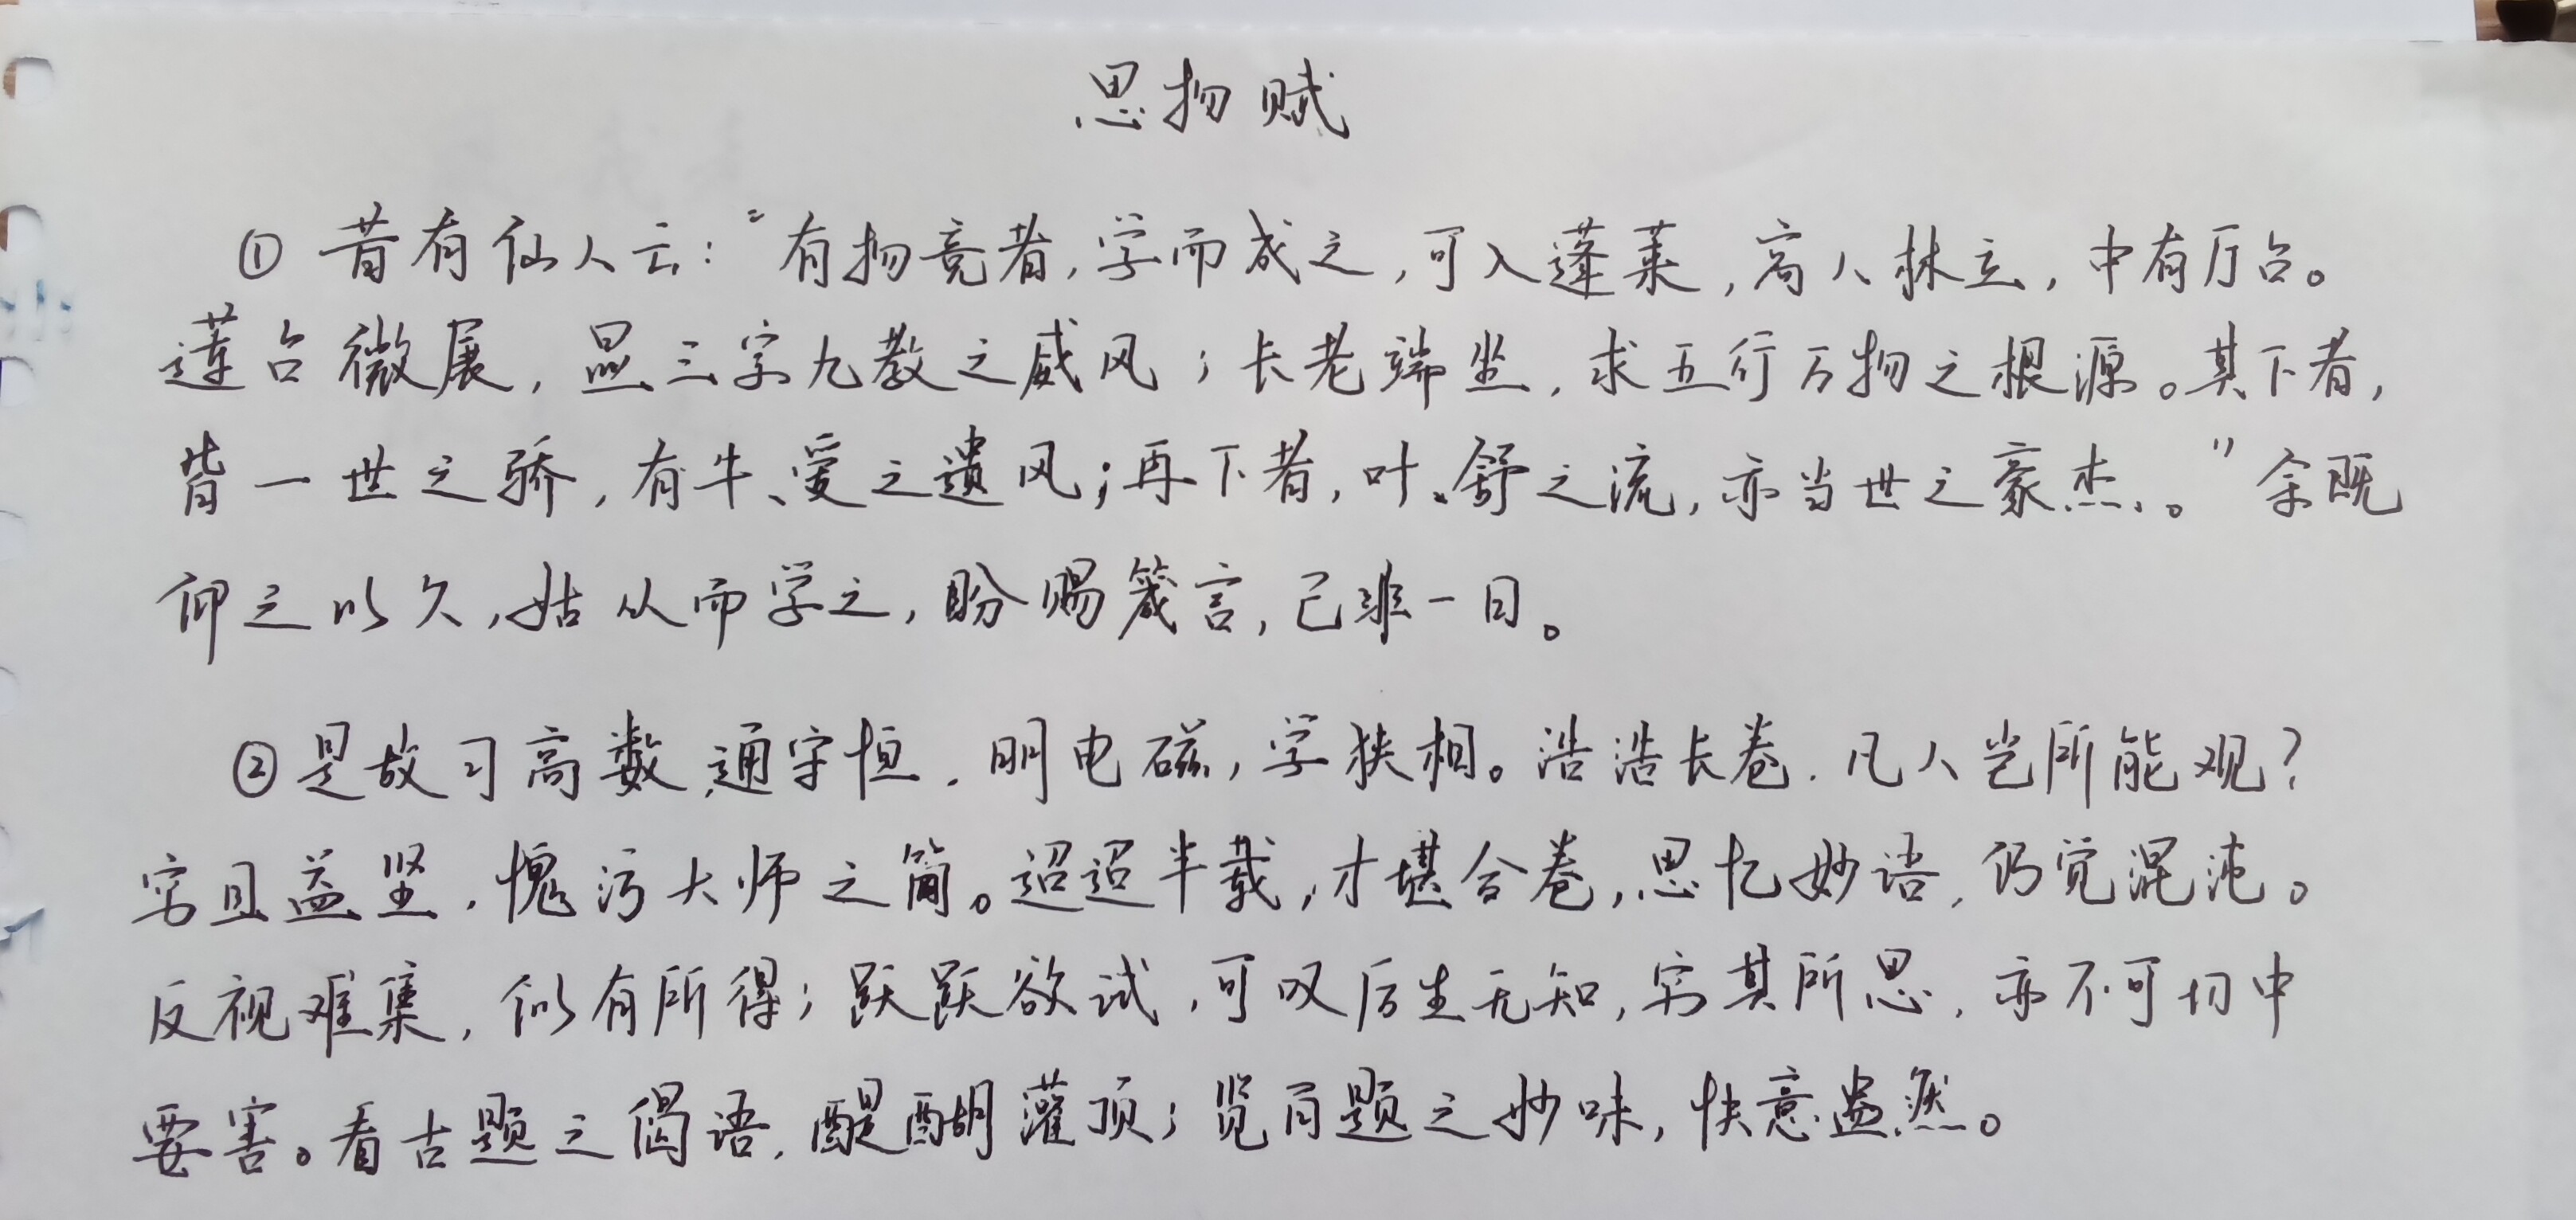 思物赋
① 昔有仙人云：“有物竞者，学而成之，可入蓬莱，高人林立，中有厅台。
莲台微展，显三字九教之威风；长老端坐，求五行万物之根源。其下者，
皆一世之骄，有牛、爱之遗风；再下者，叶、舒之流，亦当世之豪杰。”余既
仰之以久，姑从而学之，盼赐箴言，已非一日。
② 是故习高数，通守恒，明电磁，学狭相。浩浩长卷，凡人岂所能观？
穷且益坚，愧污大师之简。迢迢半载，才堪合卷，思忆妙语，仍觉混沌。
反视难集，似有所得；跃跃欲试，可叹后生无知，穷其所思，亦不可切中
要害。看古题之偈语，醍醐灌顶；览百题之妙味，快意盎然。